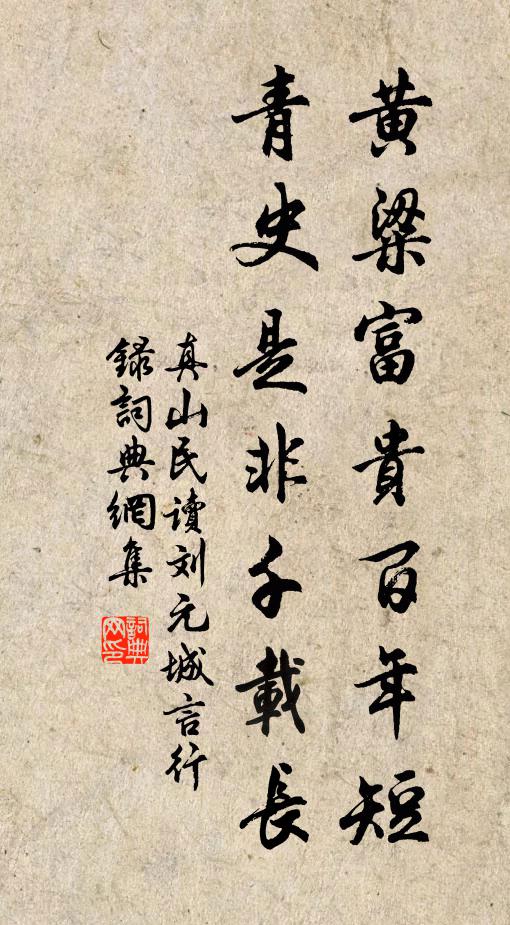 黄粱富貴百年短
青史是非千載長
真山民读刘元城言行
録詞典網集
詞典网印